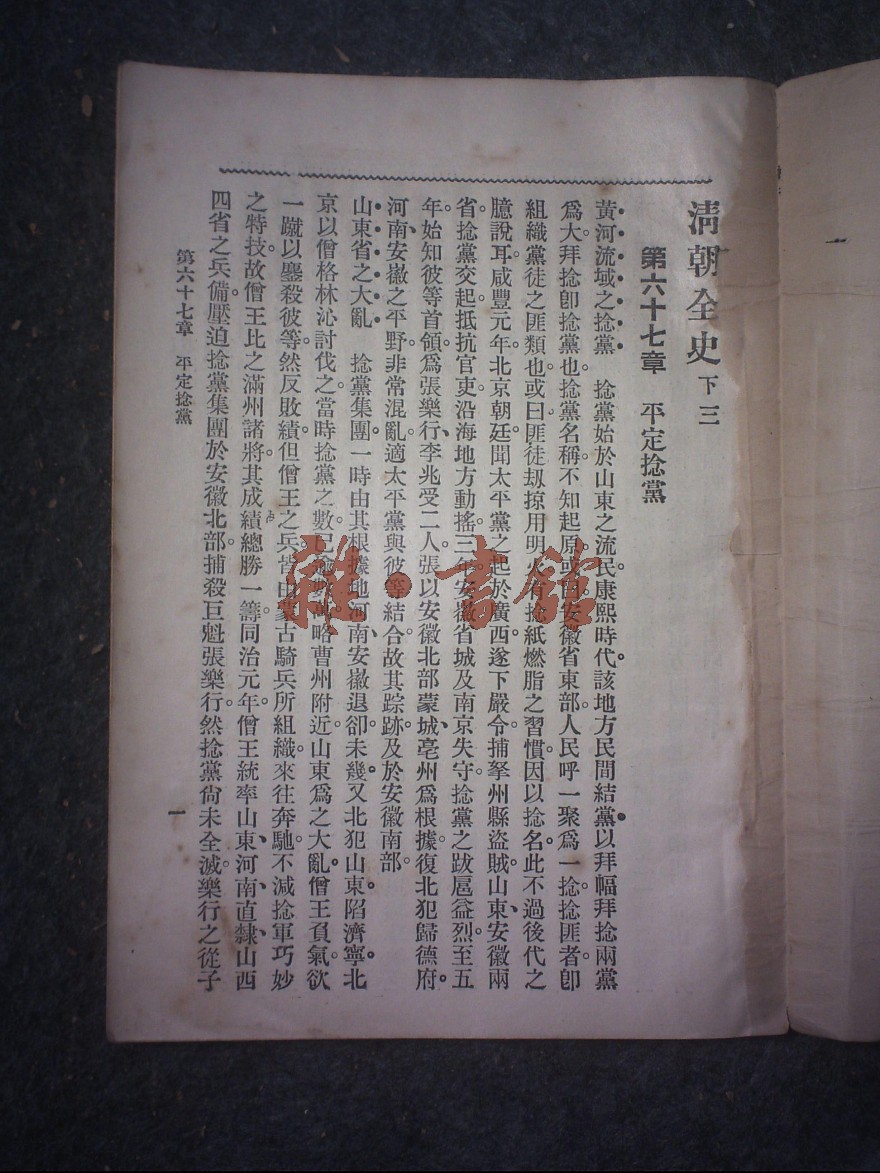 清朝全史 下三
第六十七章 平定捻黨
黃河流域之捻黨 捻黨始於山東之流民。康熙時代。該地方民間結黨。以拜幅拜捻兩黨
爲大。拜捻卽捻黨也。捻黨名稱。不知起原。或曰安徽省東部人民呼一聚爲一捻。捻匪者。卽
組織黨徒之匪類也。或曰匪徒刼掠。用明火。有捻紙燃脂之習慣。因以捻名。此不過後代之
臆說耳。咸豐元年。北京朝廷聞太平黨之起於廣西。遂下嚴令。捕拏州縣盜賊。山東、安徽兩
省捻黨交起。抵抗官吏。沿海地方動搖。三年。安徽省城及南京失守。捻黨之跋扈益烈。至五
年。始知彼等首領爲張樂行、李兆受二人。張以安徽北部蒙城、亳州爲根據。復北犯歸德府。
河南、安徽之平野。非常混亂。適太平黨與彼等結合。故其踪跡及於安徽南部。
山東省之大亂 捻黨集團。一時由其根據地河南、安徽退卻。未幾。又北犯山東。陷濟寧。北
京以僧格林沁討伐之。當時捻黨之數。已逾 略曹州附近。山東爲之大亂。僧王負氣。欲
一蹴以鏖殺彼等。然反敗績。但僧王之兵。皆由蒙古騎兵所組織。來往奔馳。不減捻軍巧妙
之特技。故僧王比之滿州諸將。其成績總勝一籌。同治元年。僧王統率山東、河南、直隸、山西
四省之兵備。壓迫捻黨集團於安徽北部。捕殺巨魁張樂行。然捻黨尙未全滅。樂行之從子
第六十七章 平定捻黨
一
雅·書館